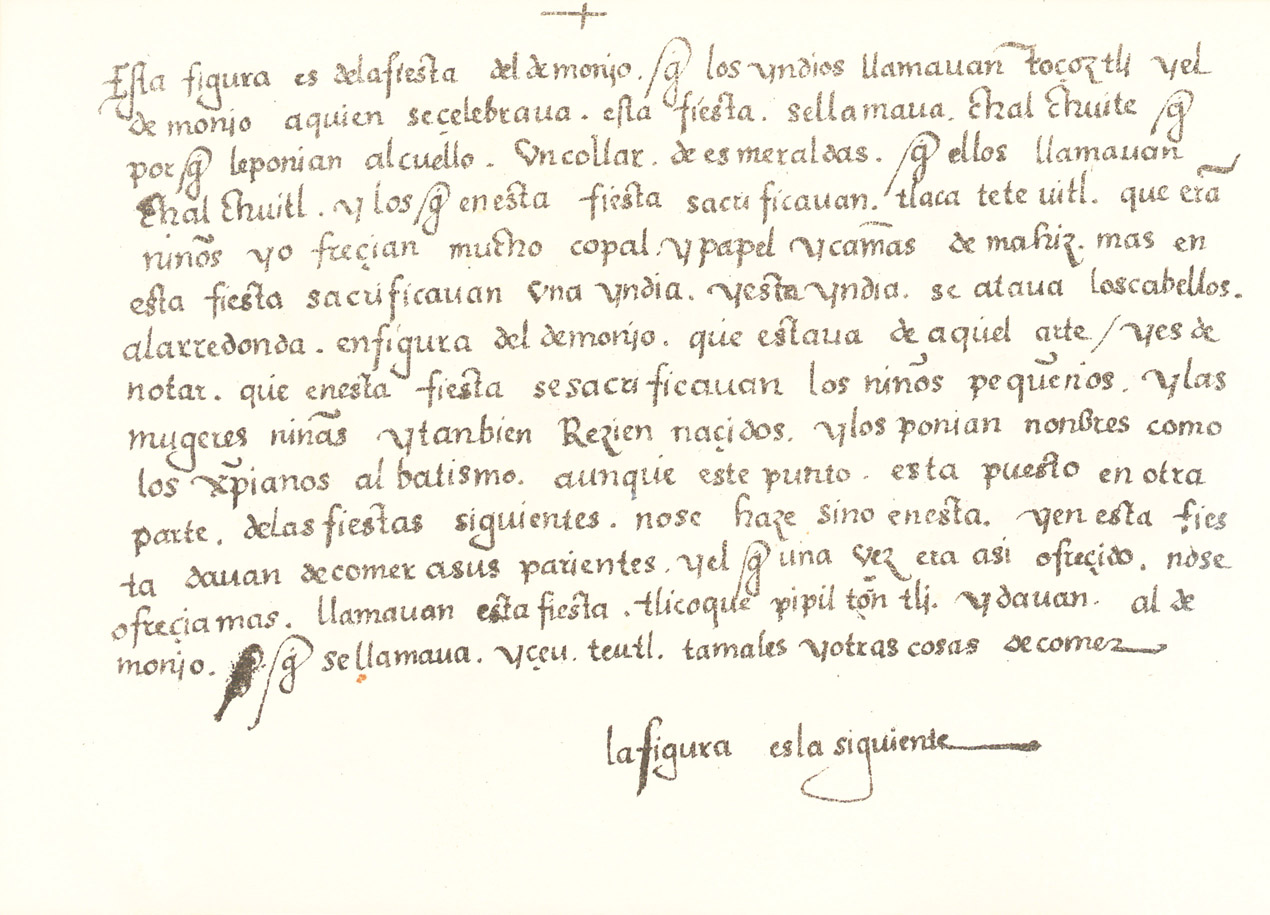 +
Esta figura es dela fiesta del demonjo. q̃ los yndios llamauan toçoztlj y el
demonjo a quien se çelebraua. esta fiesta. se llamaua. chalchuite q̃
por q̃ le ponian al cuello. Vn collar. de esmeraldas. q̃ ellos llamauan
chalchuitl. y los q̃ en esta fiesta sacrificauan. tlacateteuitl. que erã
niños y ofreçian mucho copal. y papel y cam̃as de mahiz. mas en
esta fiesta sacrificauan Vna yndia. y esta yndia. se ataua los cabellos.
alarredonda. en figura del demonjo. que estaua de aquel arte / y es de
notar. que en esta fiesta se sacrificauan los niños pequeños. y las
mugeres niñas y tanbien Rezien naçidos. y los ponian nonbres como
los xp̃ianos al batismo. aunque este punto. esta puesto en otra
parte. delas fiestas siguientes. no se haze sino en esta. y en esta fies
ta dauan de comer a sus parientes. y el q̃ una vez era asi ofreçido. no se
ofreçia mas. llamauan esta fiesta. tlicoque pipiltõntlj. y dauan. al de
monjo. q̃ se llamaua. yçeu. teutl. tamales y otras cosas de comer
la figura es la siguiente